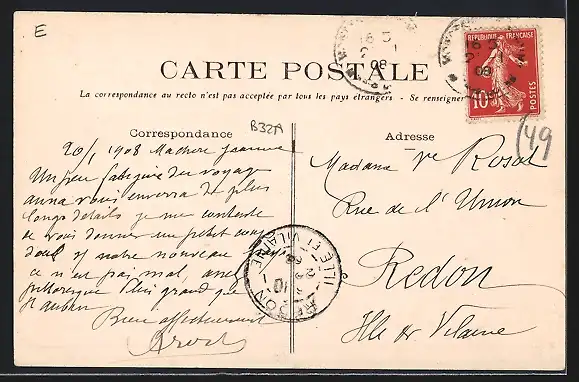 E
CARTE POSTALE
La correspondance au recto n'est pas acceptée par tous les pays étrangers. - Se renseigner
REPUBLIQUE FRANÇAISE
10
POSTES
16 5
08
16 5
08
49
B32A
Correspondance
Adresse
20/1 1908 Ma chère Jeanne
Un peu fatiguée du voyage
anna vous enverra de plus
longs détails je me contente
de vous donner un petit coup
d'œil de notre nouveau pays
ce n'est pas mal, assez
pittoresque Plus grand que
St aubin
Bien affectueusement
Madame Vve Rosal
Rue de l'Union
Redon
Ille et Vilaine
REDON
ILLE ET VILAINE